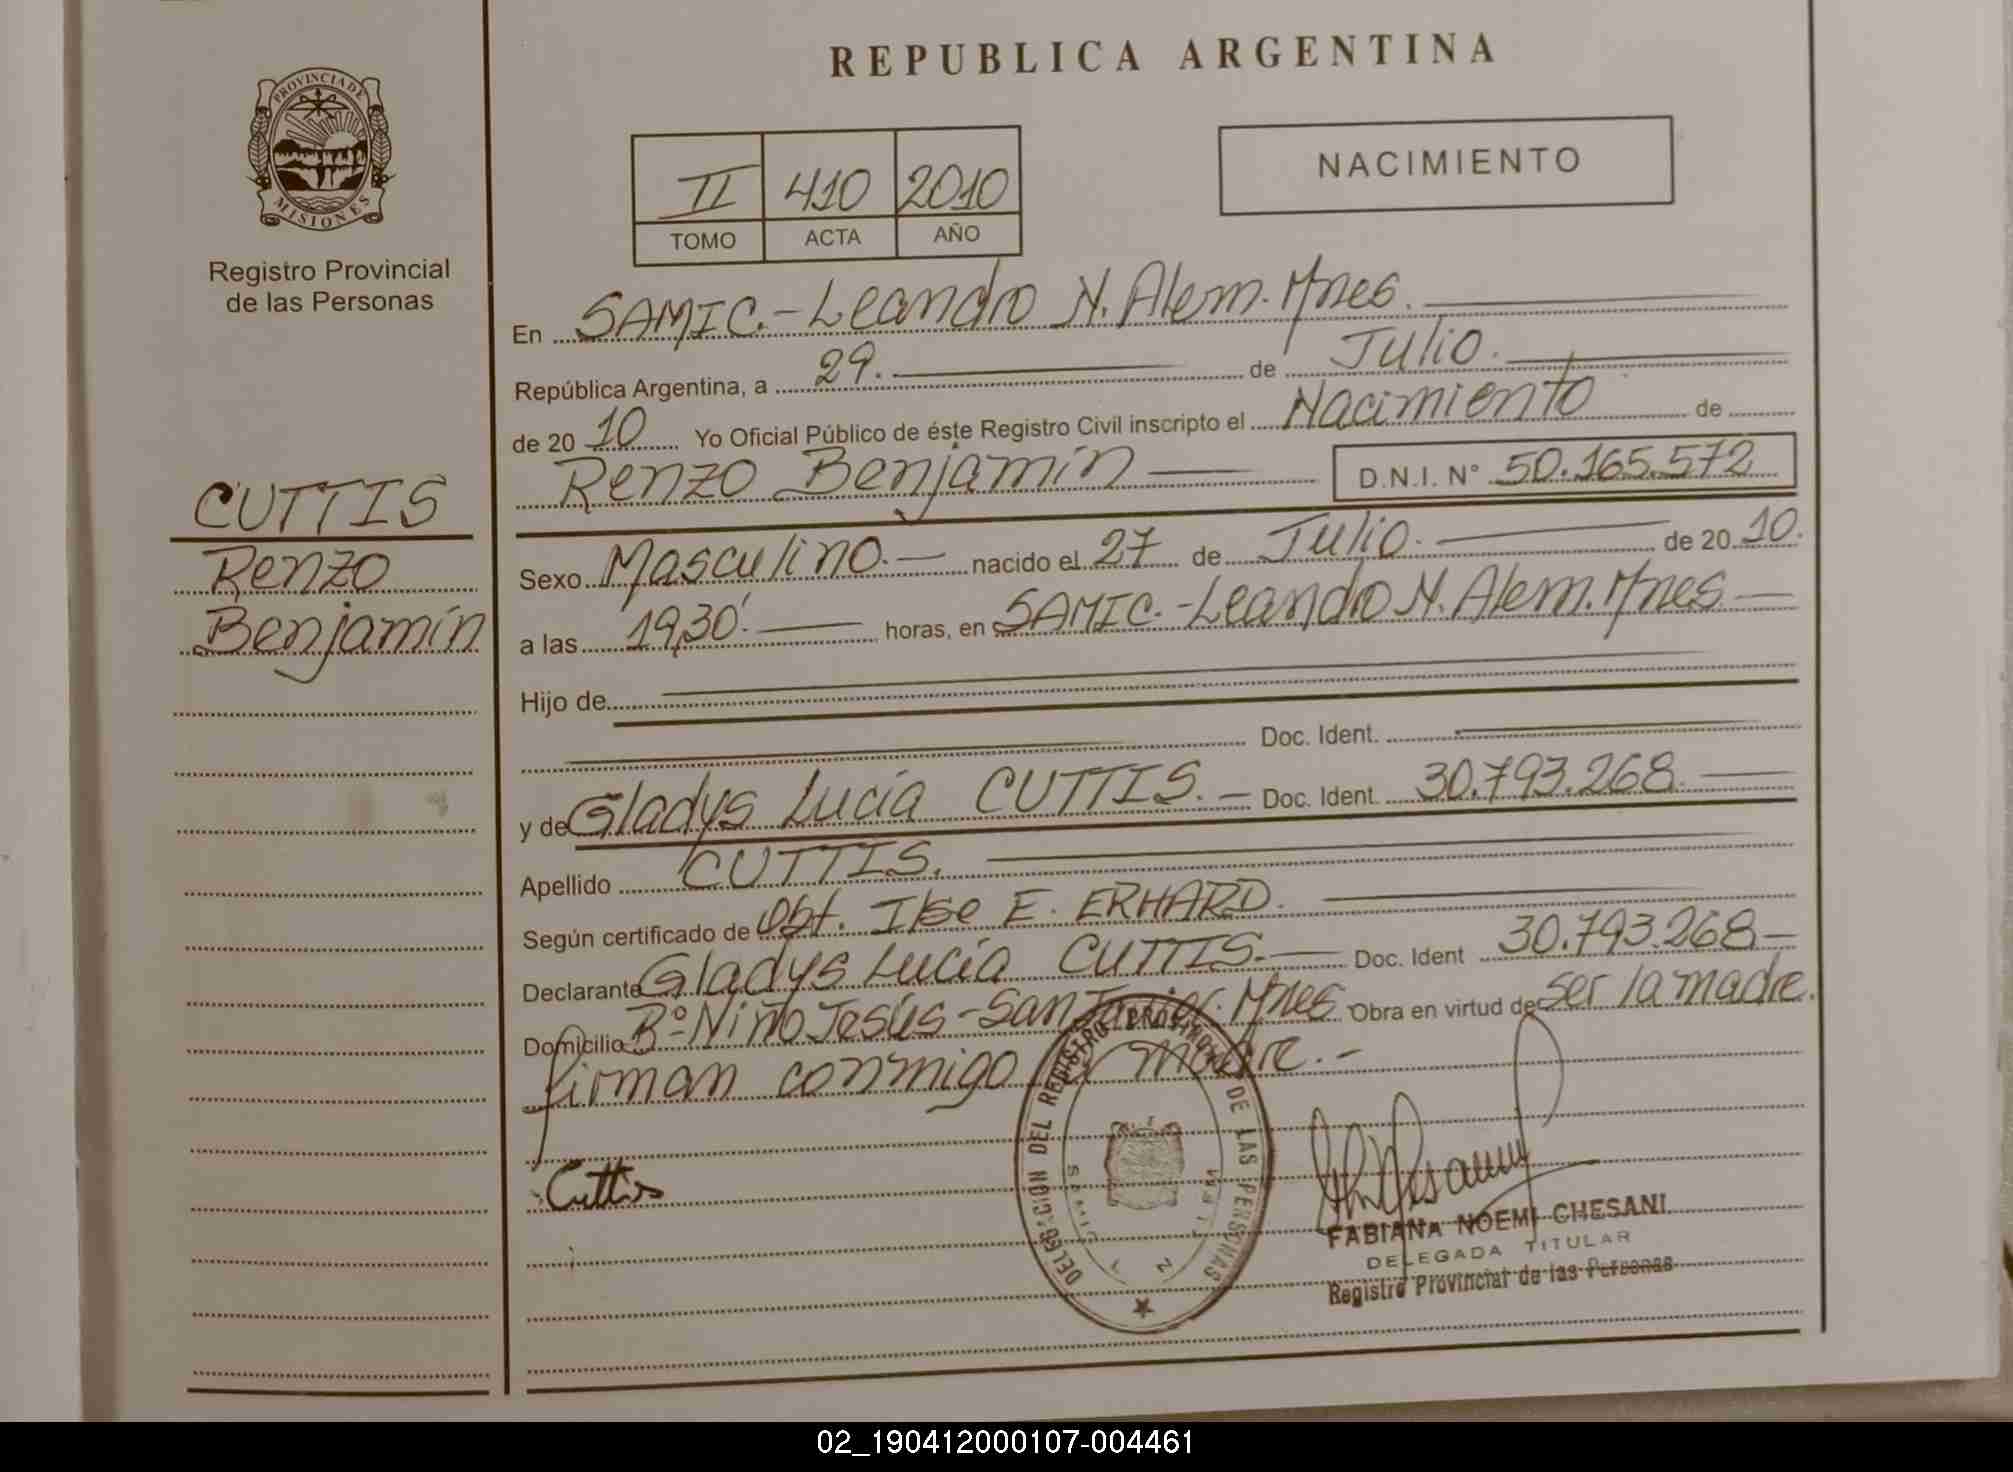 REPUBLICA ARGENTINA
PROVINCIA DE
MISIONES
Registro Provincial
de las Personas
CUTTIS
Renzo
Benjamín
NACIMIENTO
II 410 2010
TOMO ACTA AÑO
En SAMIC.-Leandro N. Alem. Mnes.
República Argentina, a 29. de Julio.
de 20 10 Yo Oficial Público de éste Registro Civil inscripto el Nacimiento de
Renzo Benjamín D.N.I. N° 50.165.572
Sexo Masculino.- nacido el 27 de Julio. de 20 10.
a las 19,30'. horas, en SAMIC.-Leandro N. Alem. Mnes
Hijo de
Doc. Ident.
y de Gladys Lucía CUTTIS.- Doc. Ident. 30.793.268.
Apellido CUTTIS.
Según certificado de Obt. Ilse E. ERHARD.
Declarante Gladys Lucía CUTTIS.- Doc. Ident 30.793.268-
Domicilio B° Niño Jesús-San Javier. Mnes Obra en virtud de ser la madre.
firman conmigo madre.-
Cuttis
DELEGACION DEL REGISTRO PROVINCIAL DE LAS PERSONAS
SAMIC L N ALEM
FABIANA NOEMI CHESANI
DELEGADA TITULAR
Registro Provincial de las Personas
02_190412000107-004461